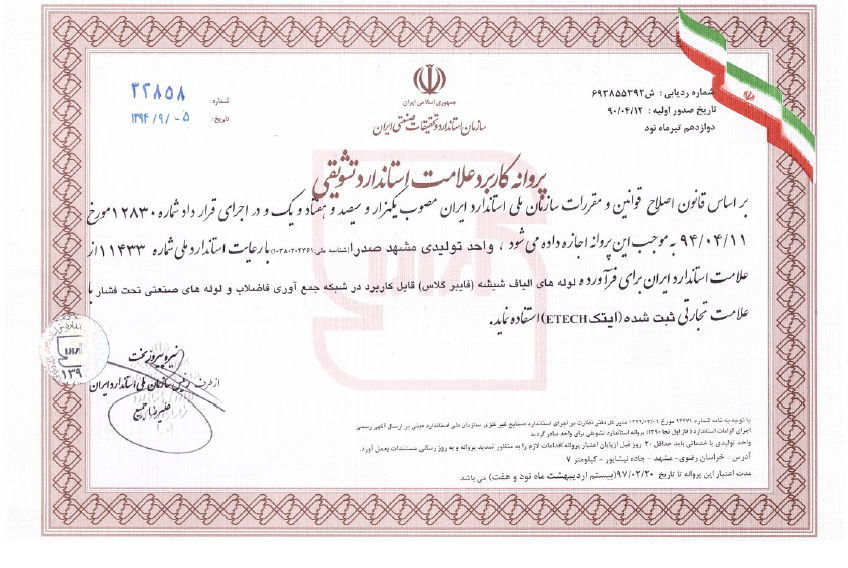 جمهوری اسلامی ایران
سازمان استاندارد و تحقیقات صنعتی ایران
شماره ردیابی : ش۶۹۳۸۵۵۳۹۲
تاریخ صدور اولیه : ۹۰/۰۴/۱۲
دوازدهم تیرماه نود
شماره: ۳۲۸۵۸
تاریخ: ۱۳۹۴/۹/-۵
پروانه کاربرد علامت استاندارد تشویقی
بر اساس قانون اصلاح قوانین و مقررات سازمان ملی استاندارد ایران مصوب یکهزار و سیصد و هفتاد و یک و در اجرای قرارداد شماره ۱۲۸۳۰ مورخ
۹۴/۰۴/۱۱ به موجب این پروانه اجازه داده می شود ، واحد تولیدی مشهد صدرا(شناسه ملی:۱۰۳۸۰۲۰۴۳۶۱) با رعایت استاندارد ملی شماره ۱۱۴۳۳ از
علامت استاندارد ایران برای فرآورده لوله های الیاف شیشه (فایبر گلاس) قابل کاربرد در شبکه جمع آوری فاضلاب و لوله های صنعتی تحت فشار با
علامت تجارتی ثبت شده (ایتک ETECH) استفاده نماید.
نیره پیروزبخت
رئیس سازمان ملی استاندارد ایران
از طرف
۱۳۹
با توجه به نامه شماره ۱۴۴۷۱ مورخ ۱۳۹۴/۰۳/۰۱ مدیر کل دفتر نظارت بر اجرای استاندارد صنایع غیر فلزی سازمان ملی استاندارد مبنی بر ارسال آگهی رسمی
اجرای الزامات استاندارد (فاز اول نجا ۱۳۹۰) پروانه استاندارد تشویقی برای واحد صادر گردید
واحد تولیدی یا خدماتی باید حداقل ۳۰ روز قبل از پایان اعتبار پروانه اقدامات لازم را به منظور تمدید پروانه و به روز رسانی مستندات بعمل آورد.
آدرس : خراسان رضوی- مشهد - جاده نیشابور - کیلومتر ۷
مدت اعتبار این پروانه تا تاریخ ۹۷/۰۲/۲۰(بیستم اردیبهشت ماه نود و هفت) می باشد